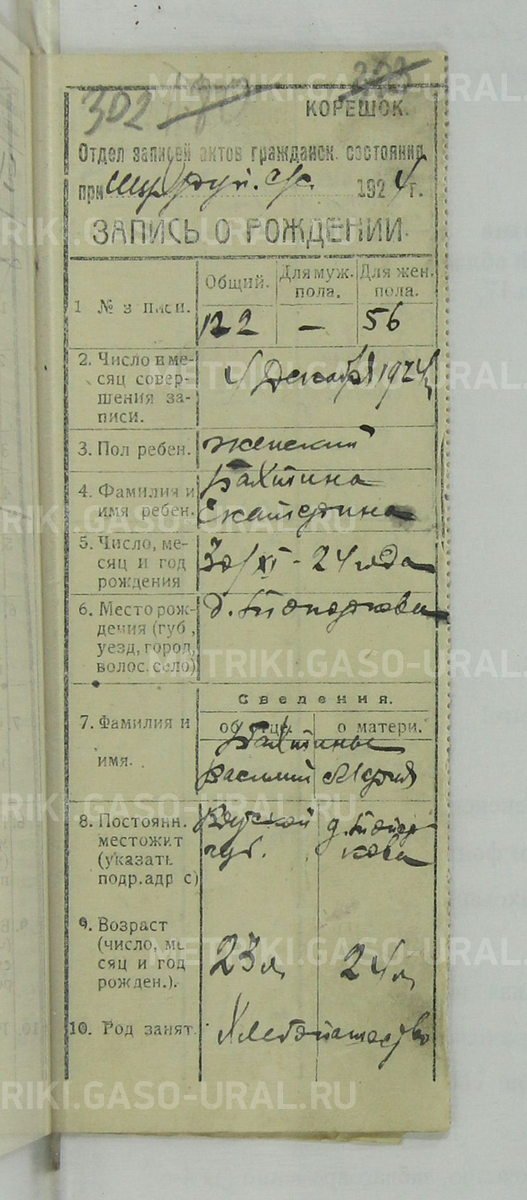 302
КОРЕШОК.
Отдел записей актов гражданск. состояния
при с/с. 1924 г.
ЗАПИСЬ О РОЖДЕНИИ.
1 № з писи. Общий. Для муж. пола. Для жен. пола.
122 — 56
2. Число и месяц совершения записи. 4 Декабря 1924
3. Пол ребен. женский
4. Фамилия и имя ребен. Бахтина
Екатерина
5. Число, месяц и год рождения 30/XI - 24 года
6. Место рождения (губ., уезд, город, волос. село) д.
7. Фамилия и имя. Сведения.
об отце. о матери.
Бахтины
Василий Мария
8. Постоянн. местожит (указать подр. адр с) губ. д.
9. Возраст (число, ме сяц и год рожден.). 23 л 24 л
10. Род занят. Хлебопашество
METRIKI.GASO-URAL.RU